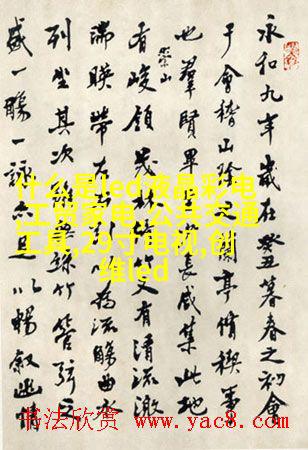 永和九年歲在癸丑暮春之初會
于會稽山陰之蘭亭脩稧事
也羣賢畢至少長咸集此地
有崇山峻領茂林脩竹又有清流激
湍暎帶左右引以為流觴曲水
列坐其次雖無絲竹管弦之
盛一觴一詠亦足以暢敘幽情
什么是led液晶彩电
,工贸家电,公共交通
工具,29寸电视,创
维led
书法欣赏 www.yac8.com